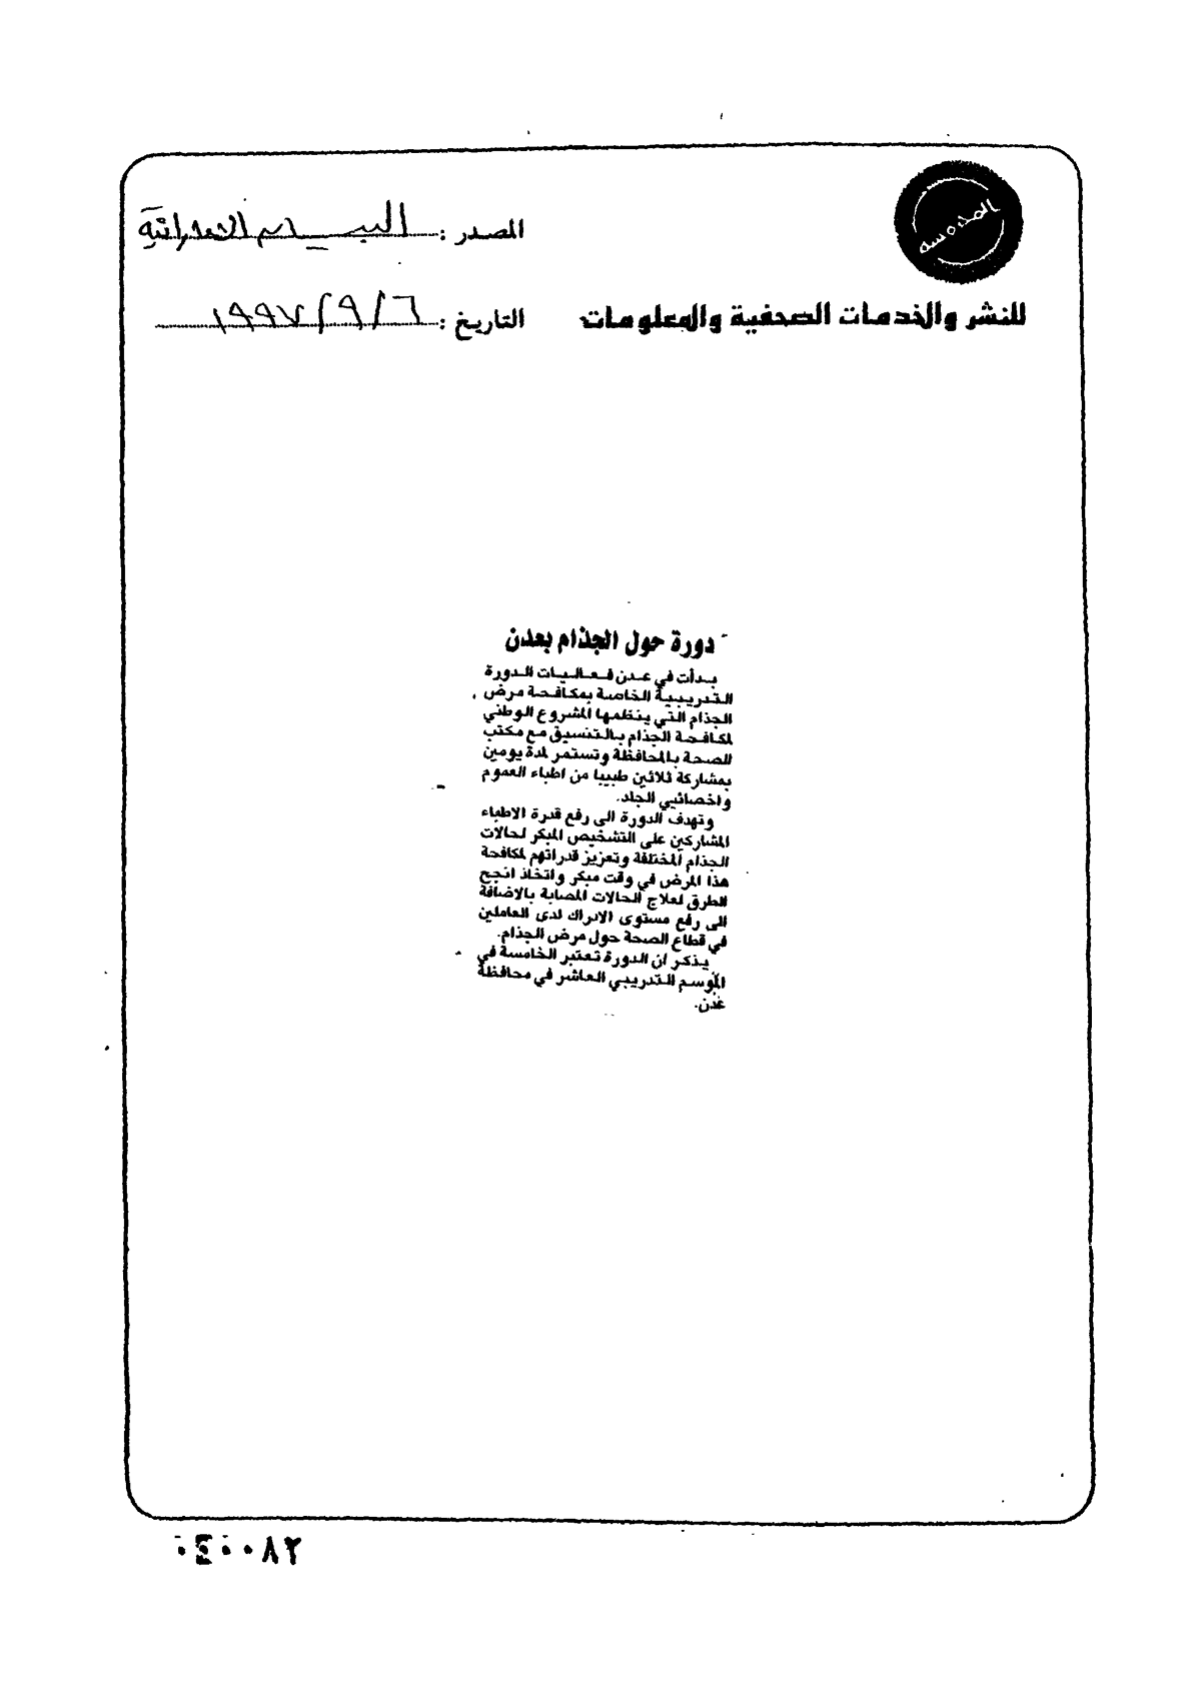 المصدر : البيان الاماراتية
للنشر والخدمات الصحفية والمعلومات
التاريخ : ٦ / ٩ / ١٩٩٧
دورة حول الجذام بعدن
بدأت في عدن فعاليات الدورة
التدريبية الخاصة بمكافحة مرض
الجذام التي ينظمها المشروع الوطني
لمكافحة الجذام بالتنسيق مع مكتب
الصحة بالمحافظة وتستمر لمدة يومين
بمشاركة ثلاثين طبيبا من اطباء العموم
واخصائيي الجلد.
وتهدف الدورة الى رفع قدرة الاطباء
المشاركين على التشخيص المبكر لحالات
الجذام المختلفة وتعزيز قدراتهم لمكافحة
هذا المرض في وقت مبكر واتخاذ انجح
الطرق لعلاج الحالات المصابة بالاضافة
الى رفع مستوى الادراك لدى العاملين
في قطاع الصحة حول مرض الجذام.
يذكر ان الدورة تعتبر الخامسة في
الموسم التدريبي العاشر في محافظة
عدن.